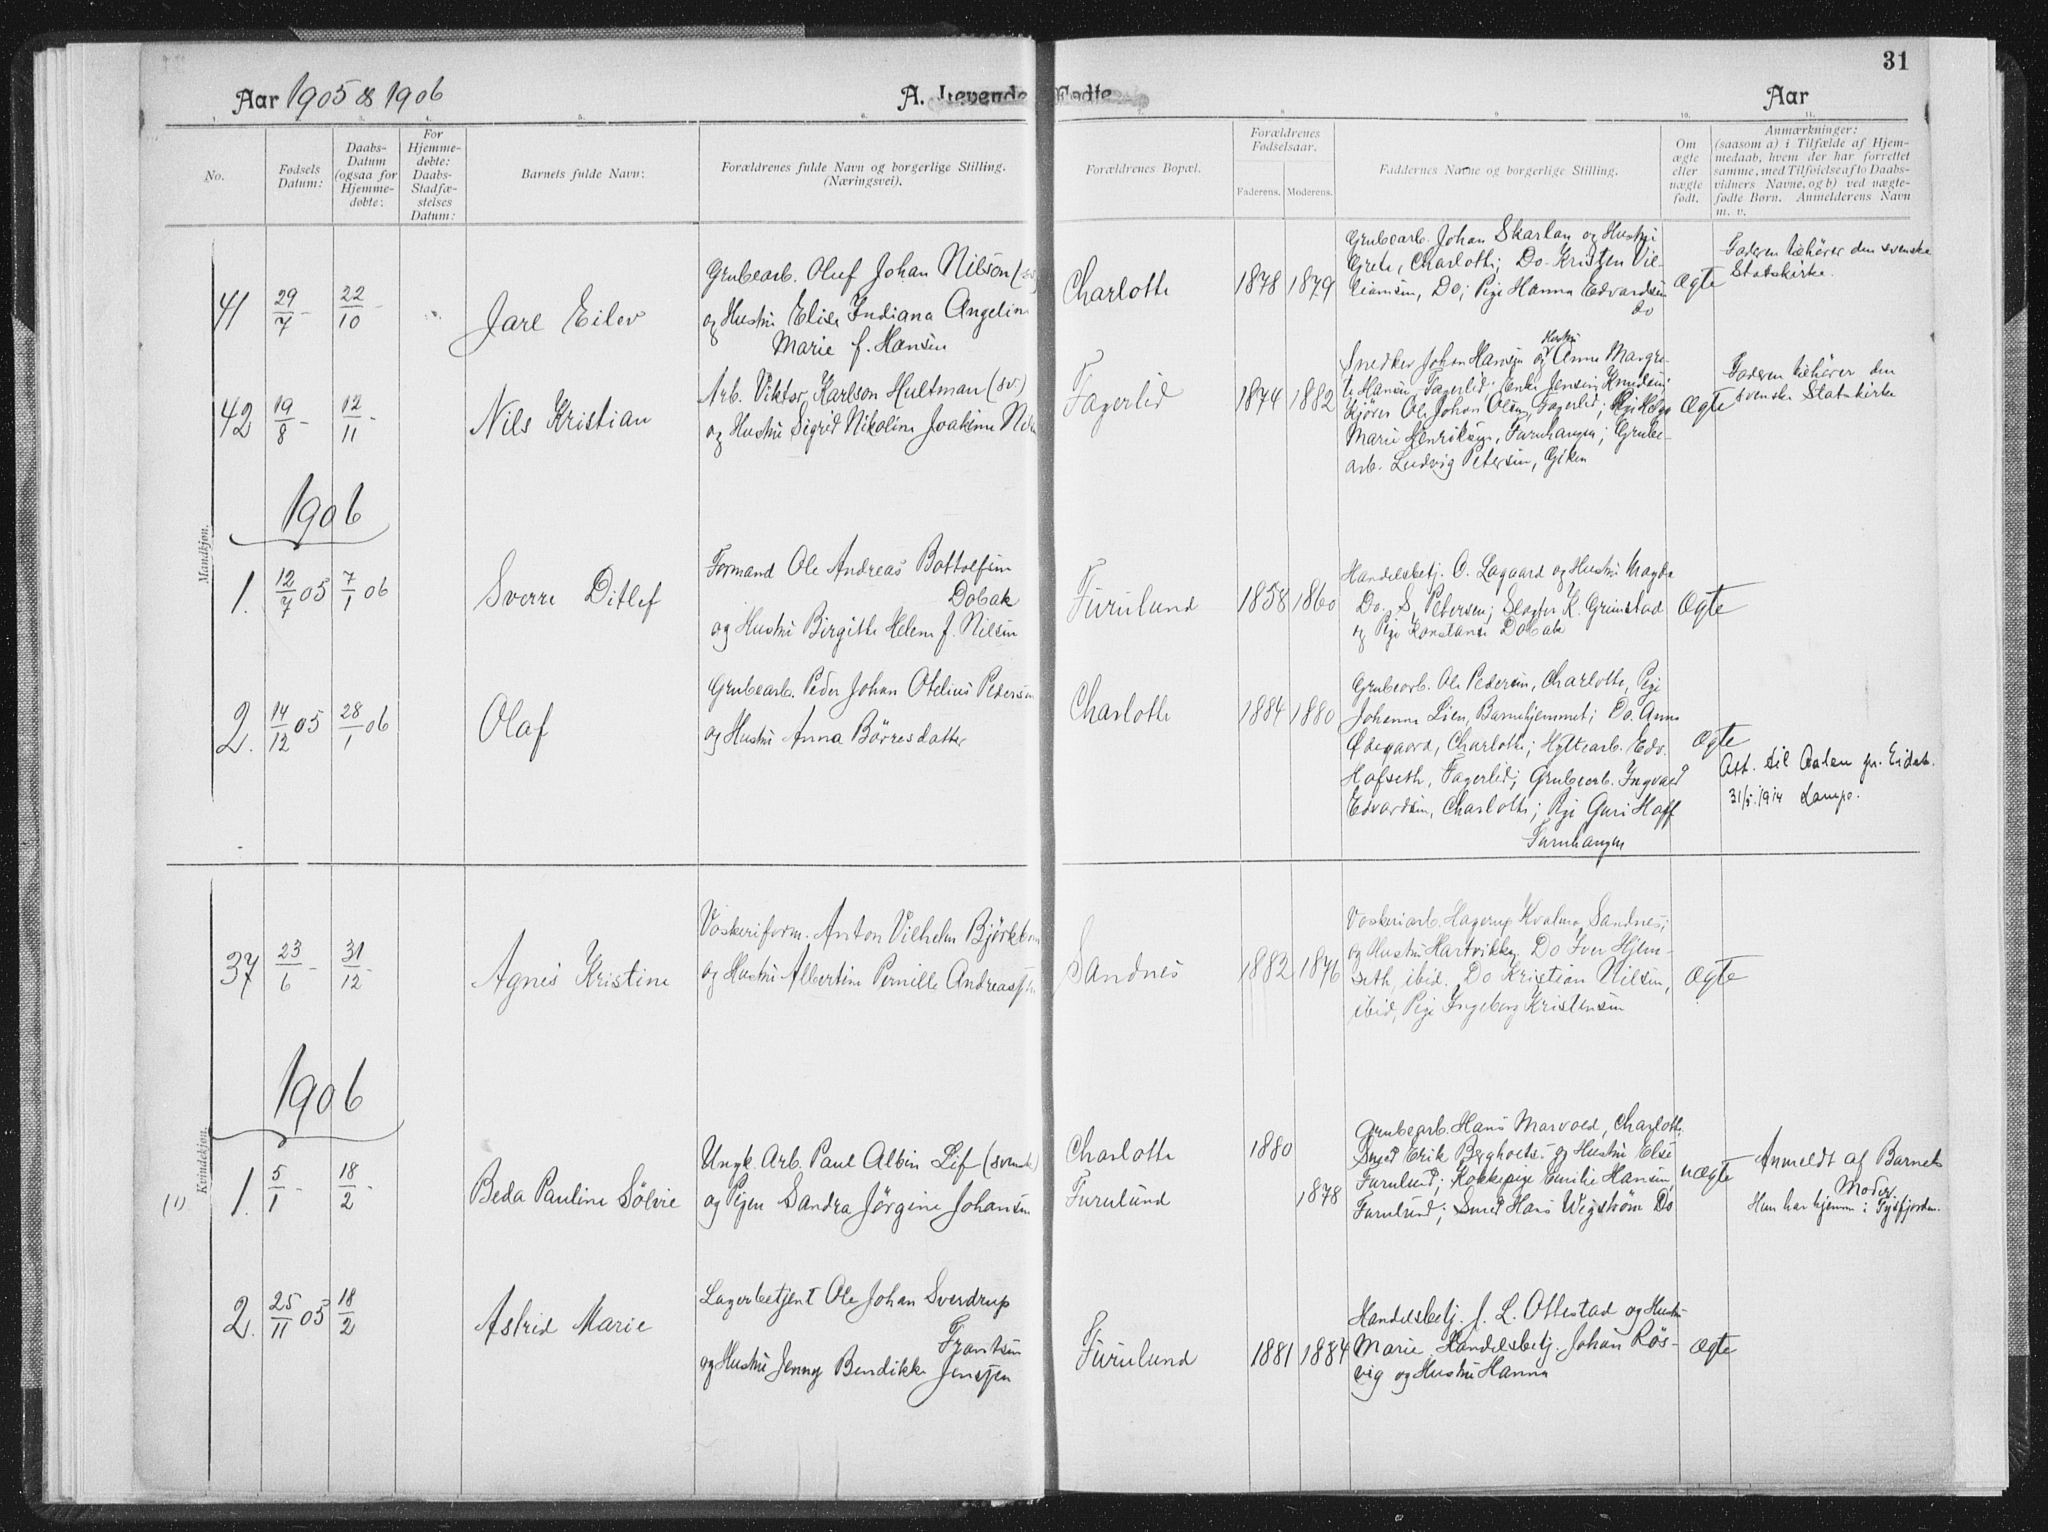 31
Aar 1905 & 1906 A. Levende Fødte Aar
1. 3. 4. 5. 6. 7. 8. 9. 10. 11.
No.
Fødsels
Datum:
Daabs-
Datum
(ogsaa for
Hjemme-
døbte:
For
Hjemme-
døbte:
Daabs-
Stadfæ-
stelses
Datum:
Barnets fulde Navn:
Forældrenes fulde Navn og borgerlige Stilling.
(Næringsvei).
Forældrenes Bopæl.
Forældrenes
Fødselsaar.
Faderens. Moderens.
Faddernes Navne og borgerlige Stilling.
Om
ægte
eller
uægte
født.
Anmærkninger:
(saasom a) i Tilfælde af Hjem-
medaab, hvem der har forrettet
samme, med Tilføielse af to Daabs-
vidners Navne, og b) ved uægte-
fødte Børn. Anmelderens Navn
m. v.
Mandkjøn.
41 29/7 - 22/10 -
Jarl Eilev
Grubearb. Oluf Johan Nilson (sv
og Hustru Elise Indiana Angelin
Marie f. Hansen
Charlotte
1878 1879
Grubearb. Johan Skarlan og Hustru
Grete, Charlotte; Do. Kristen Vil-
liamsen, Do; Pige Hanna Edvardsen
do
Ægte
Faderen tilhører den svenske
Statskirke.
42 19/8 - 12/11 -
Nils Kristian
Arb. Viktor Karlson Hultman (sv.)
og Hustru Sigrid Nikoline Joakime
Fagerlid
1874 1882
Hustru
Snedker Johan Hansen og Anna Margre-
te Hansen Fagerlid; Enke Jensine Knudsen;
Kjører Ole Johan Olsen, Fagerlid; Pige Helga
Marie Henriksen, Furuhaugen; Grube-
arb. Ludvig Petersen, Giken
Ægte
Faderen tilhører den
svenske Statskirke
1906
1. 12/7 05 7/1 06
Sverre Ditlef
Formand Ole Andreas Bottolfsen
Dobak
og Hustru Birgitte Helene f. Nilsen
Furulund
1858 1860
Handelsbetj. O. Lagaard og Hustru Magda
Do. S. Petersen; Slagter K. Grimstad
og Pige Konstanse Dobak
Ægte
2. 14/12 05 28/1 06
Olaf
Grubearb. Peder Johan Otelius Pedersen
og Hustru Anna Börresdatter
Charlotte
1884 1880
Grubearb. Ole Pedersen, Charlotte, Pige
Johanna Lien, Barnehjemmet; Do. Anna
Ödegaard, Charlotte; Hyttearb. Edv.
Hofseth, Fagerlid; Grubearb. Ingvald
Edvardsen, Charlotte; Pige Guri Hoff
Furuhaugen
Ægte
Att. til Aalen pr. Eidet.
31/5 1914
Kvindekjøn.
37 23/6 - 31/12 -
Agnes Kristine
Vaskeriform. Anton Vilhelm Björkbom
og Hustru Albertine Pernille Andreassen
Sandnes
1882 1876
Vaskeriarb. Hagerup Kvalmo, Sandnes;
og Hustru Hartvikka, Do Iver Hjem-
seth, ibid. Do Kristian Nilsen,
ibid, Pige Ingeborg Kristensen
Ægte
1906
(1) 1. 5/1 - 18/2 -
Beda Pauline Sölvie
Ungk. Arb. Paul Albin Lif (svensk)
og Pigen Sandra Jörgine Johansen
Charlotte
Furulund
1880
1878
Grubearb. Hans Marvold, Charlotte;
Smed Erik Bergholts. og Hustru Else
Furulund; Kokkepige Emilie Hansen,
Furulund; Smed Hans Wigström Do
uægte
Anmeldt af Barnets
Moder.
Hun har hjemme i Tysfjorden.
2. 25/11 05 18/2
Astrid Marie
Lagerbetjent Ole Johan Sverdrup
Frantsen
og Hustru Jenny Bendikke Jenssen
Furulund
1881 1884
Handelsbetj. J. L. Ottestad og Hustru
Marie, Handelsbetj. Johan Rös-
vig og Hustru Hanna
Ægte